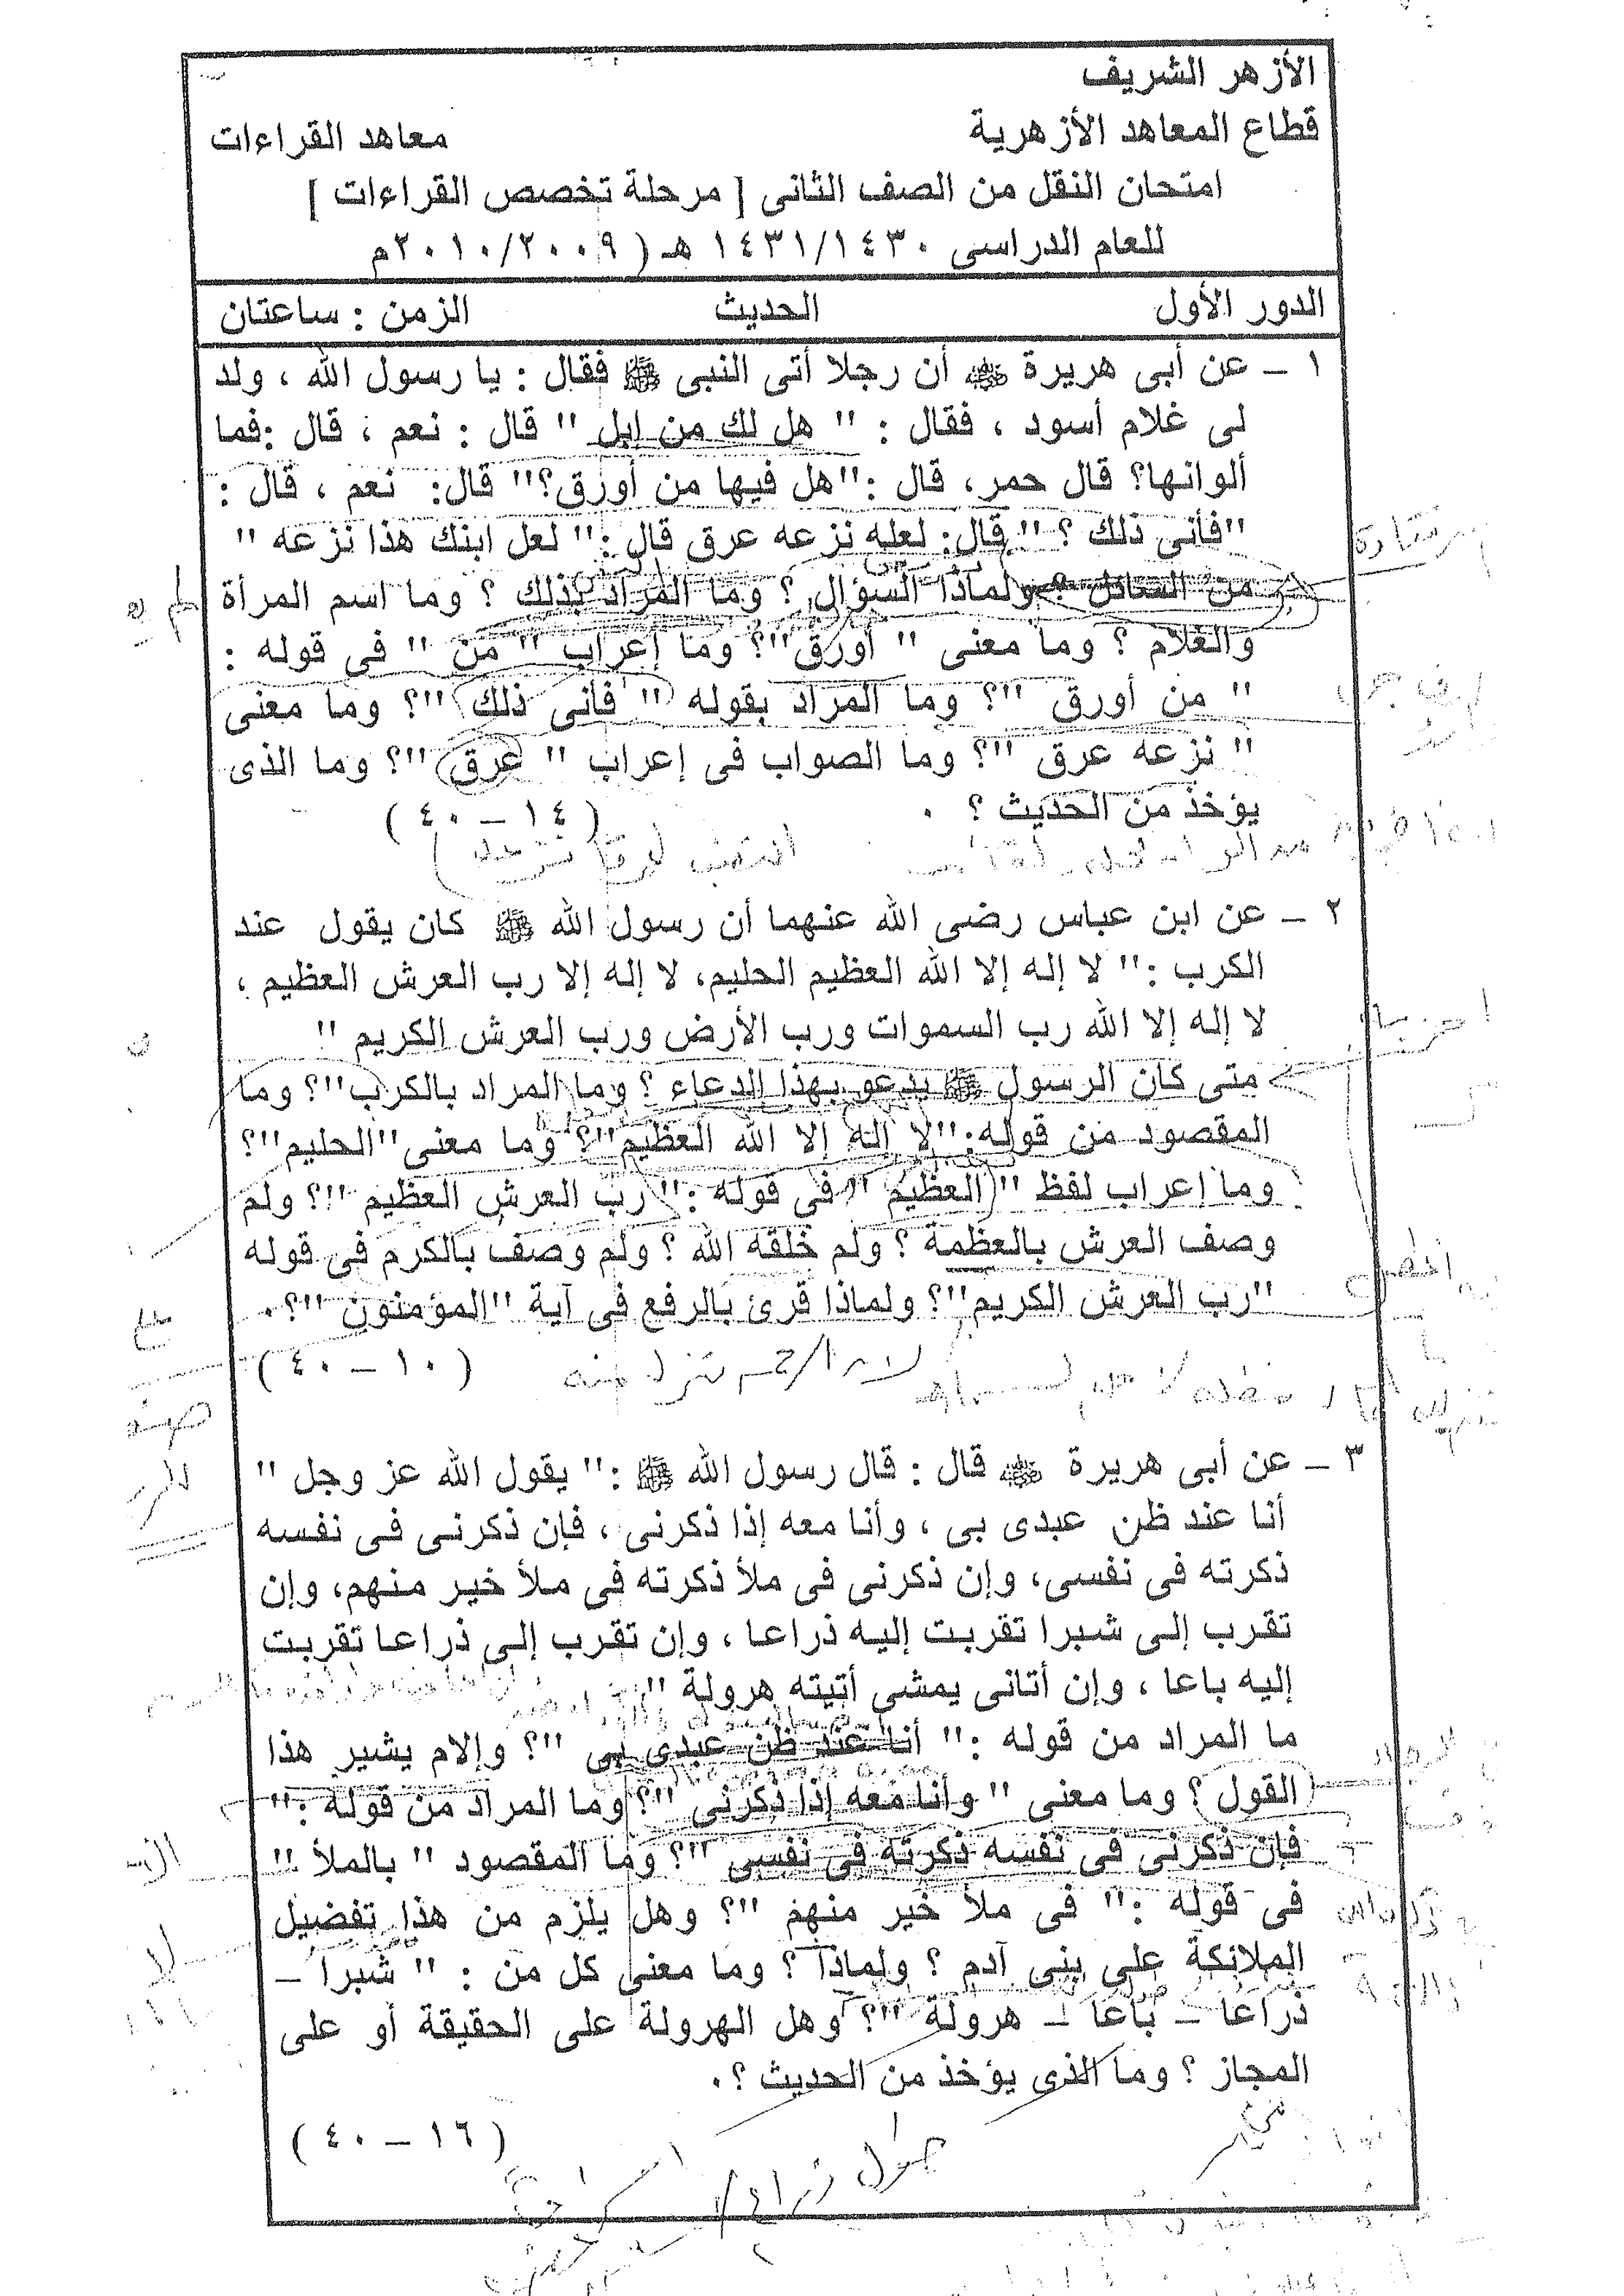 الأزهر الشريف
قطاع المعاهد الأزهرية معاهد القراءات
امتحان النقل من الصف الثانى [ مرحلة تخصص القراءات ]
للعام الدراسى ١٤٣١/١٤٣٠ هـ ( ٢٠١٠/٢٠٠٩م
الدور الأول الحديث الزمن : ساعتان
١ – عن أبى هريرة ﷺ أن رجلا أتى النبى ﷺ فقال : يا رسول الله ، ولد
لى غلام أسود ، فقال : " هل لك من إبل " قال : نعم ، قال :فما
ألوانها؟ قال حمر، قال :"هل فيها من أورق؟" قال: نعم ، قال :
"فأنى ذلك ؟ " قال: لعله نزعه عرق قال :" لعل ابنك هذا نزعه "
من السائل ؟ ولماذا السؤال ؟ وما المراد بذلك ؟ وما اسم المرأة
والغلام ؟ وما معنى " أورق"؟ وما إعراب " من " فى قوله :
" من أورق "؟ وما المراد بقوله " فأنى ذلك "؟ وما معنى
" نزعه عرق "؟ وما الصواب فى إعراب " عرق "؟ وما الذى
يؤخذ من الحديث ؟ . (١٤ – ٤٠)
٢ – عن ابن عباس رضى الله عنهما أن رسول الله ﷺ كان يقول عند
الكرب :" لا إله إلا الله العظيم الحليم، لا إله إلا رب العرش العظيم ،
لا إله إلا الله رب السموات ورب الأرض ورب العرش الكريم "
متى كان الرسول ﷺ يدعو بهذا الدعاء ؟ وما المراد بالكرب"؟ وما
المقصود من قوله:"لا إله إلا الله العظيم"؟ وما معنى"الحليم"؟
وما إعراب لفظ " العظيم " فى قوله :" رب العرش العظيم "؟ ولم
وصف العرش بالعظمة ؟ ولم خلقه الله ؟ ولم وصف بالكرم فى قوله
"رب العرش الكريم"؟ ولماذا قرئ بالرفع فى آية "المؤمنون "؟.
(١٠ – ٤٠)
٣ – عن أبى هريرة قال : قال رسول الله ﷺ :" يقول الله عز وجل "
أنا عند ظن عبدى بى ، وأنا معه إذا ذكرنى ، فإن ذكرنى فى نفسه
ذكرته فى نفسى، وإن ذكرنى فى ملأ ذكرته فى ملأ خير منهم، وإن
تقرب إلى شبرا تقربت إليه ذراعا ، وإن تقرب إلى ذراعا تقربت
إليه باعا ، وإن أتانى يمشى أتيته هرولة "
ما المراد من قوله :" أنا عند ظن عبدى بى "؟ وإلام يشير هذا
القول ؟ وما معنى " وأنا معه إذا ذكرنى "؟ وما المراد من قوله :"
فإن ذكرنى فى نفسه ذكرته فى نفسى "؟ وما المقصود " بالملأ "
فى قوله :" فى ملأ خير منهم "؟ وهل يلزم من هذا تفضيل
الملائكة على بنى آدم ؟ ولماذا ؟ وما معنى كل من : " شبرا –
ذراعا – باعا – هرولة "؟ وهل الهرولة على الحقيقة أو على
المجاز ؟ وما الذى يؤخذ من الحديث ؟.
(١٦ – ٤٠)